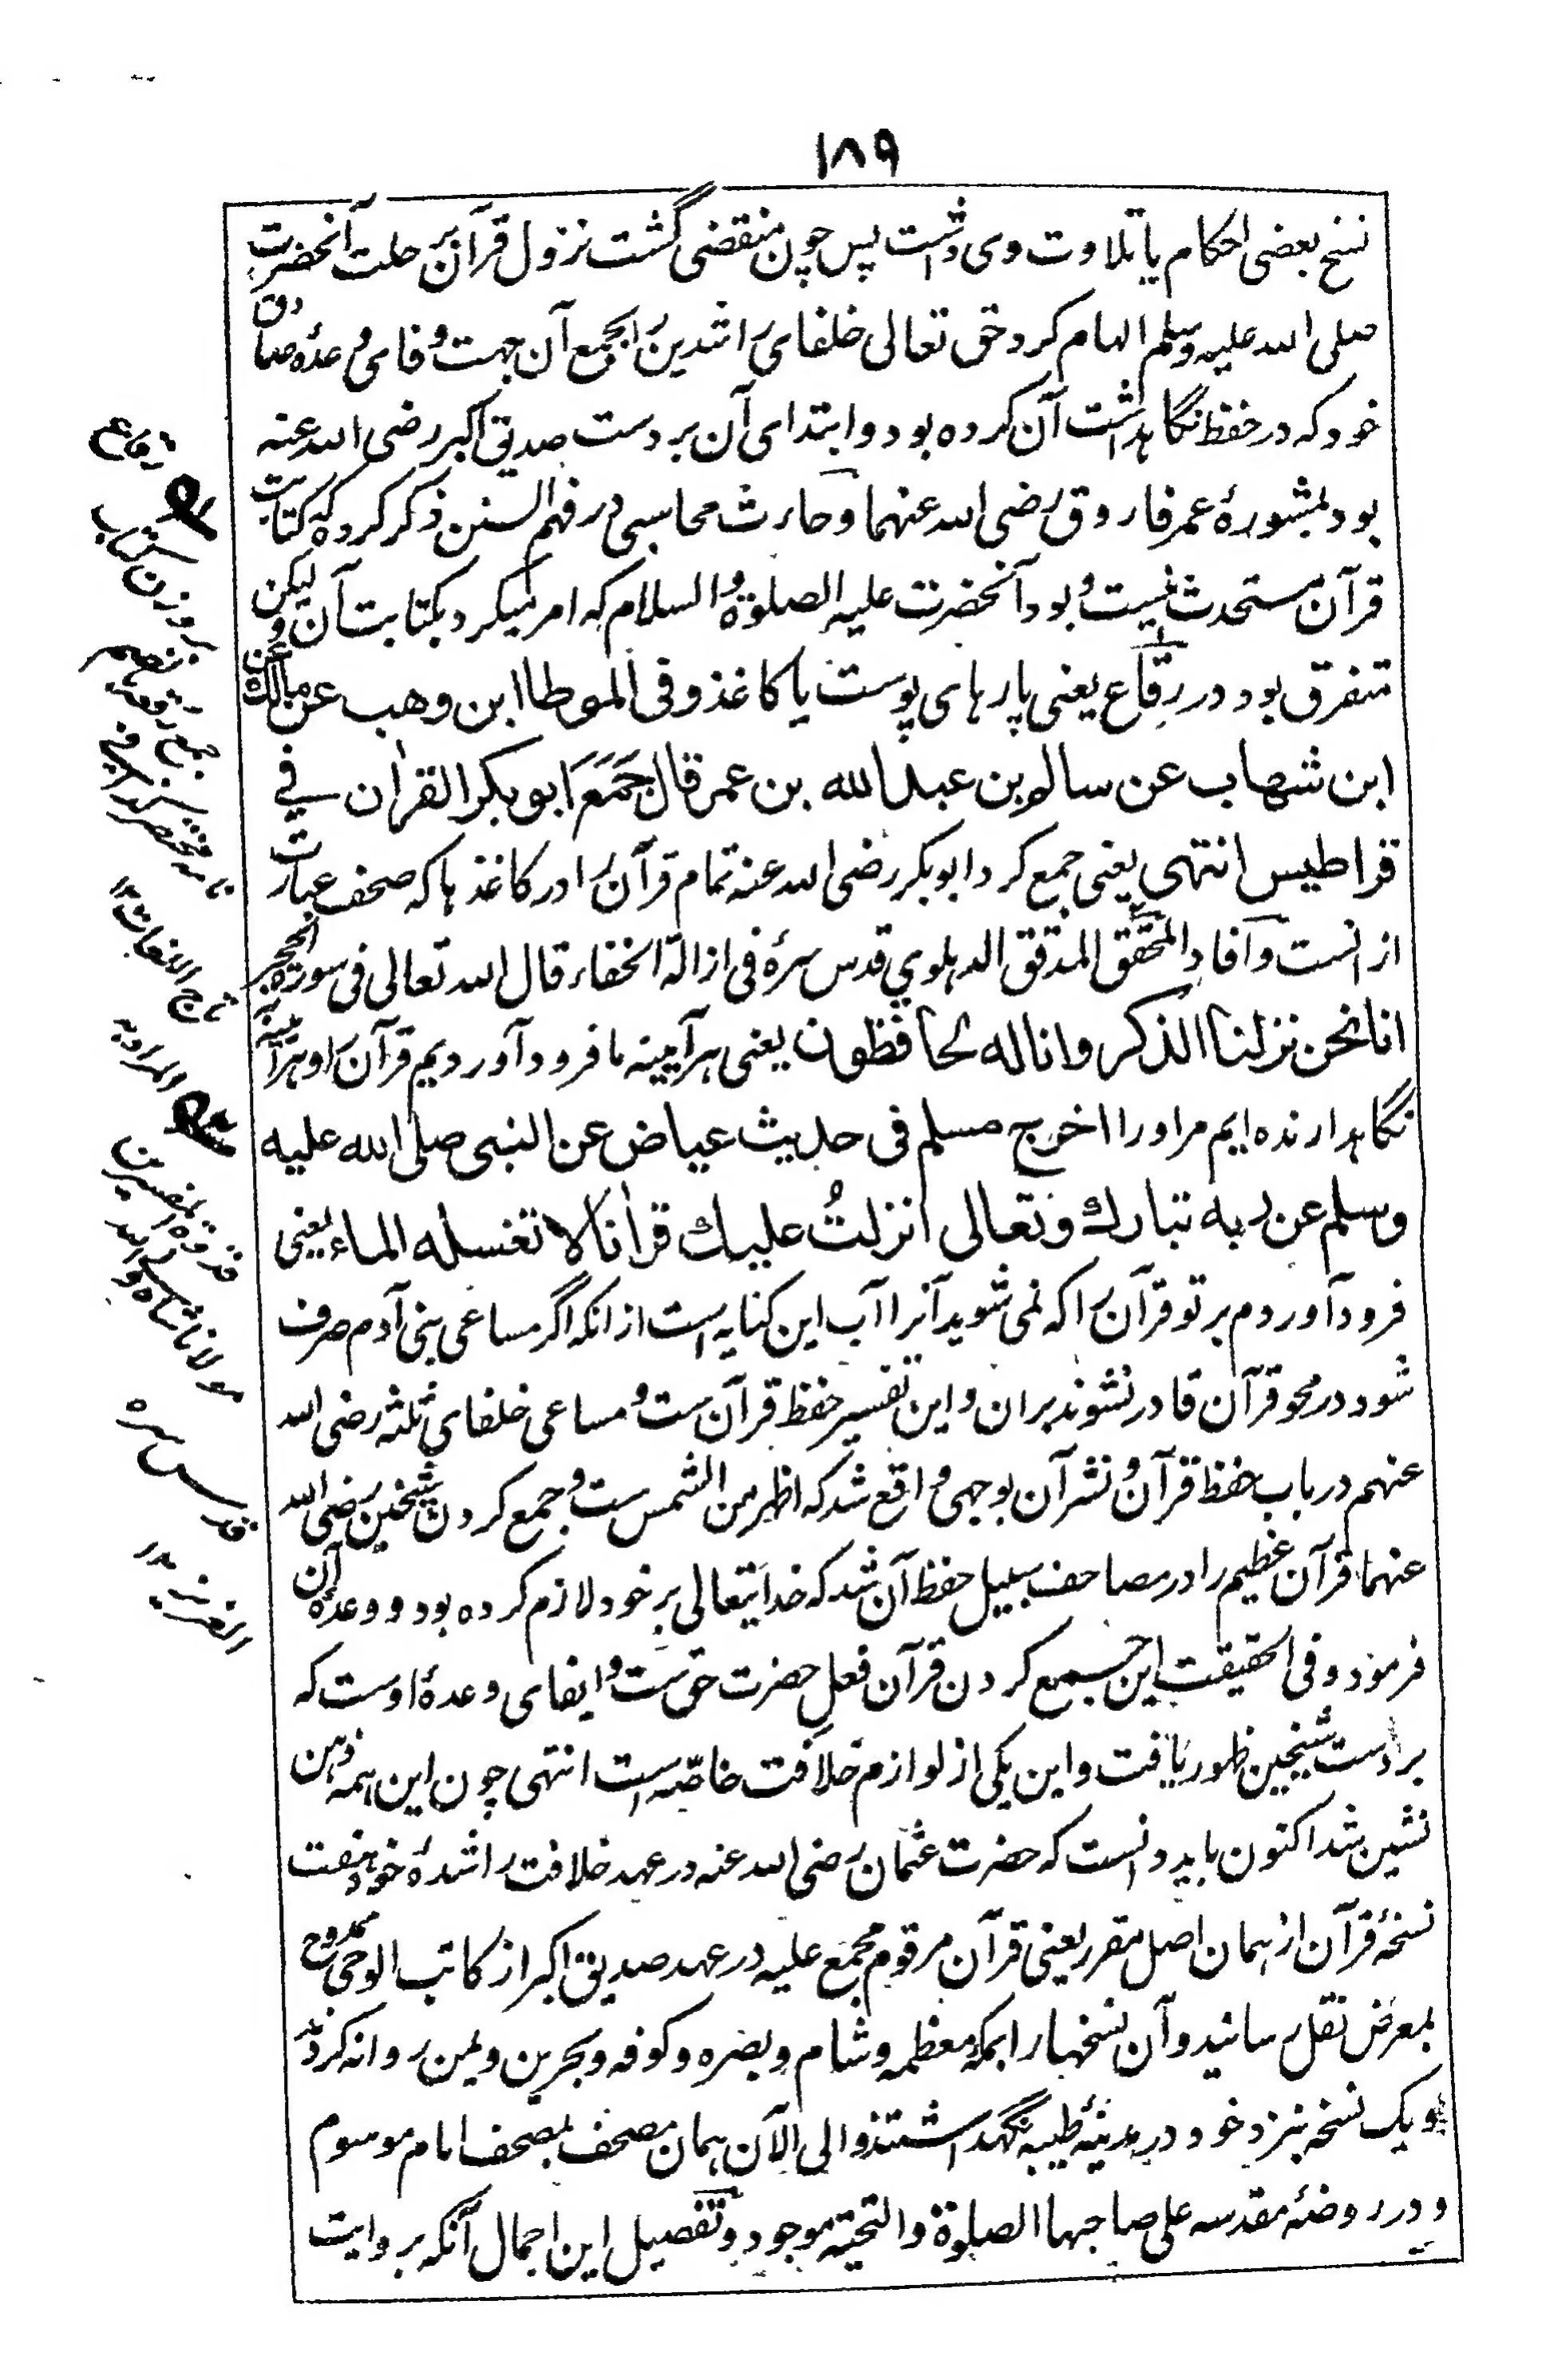 ۱۸۹
نسخ بعضی احکام یا تلاوت وی داشت پس چون منقضی گشت نزول قرآن بر حلت آنحضرت
صلی الله علیه وسلم الهام کرد حق تعالی خلفای راشدین را بجمع آن جهت وفای وعدۀ صادق
خود که در حفظ نگاهداشت آن کرده بود و ابتدای آن بر دست صدیق اکبر رضی الله عنه
بود بمشورۀ عمر فاروق رضی الله عنهما و حارث محاسبی در فهم السنن ذکر کرده که کتابت
قرآن مستحدث نیست و بود آنحضرت علیه الصلوة والسلام که امر میکرد بکتابت آن ولیکن
متفرق بود در رقاع یعنی پارهای پوست یا کاغذ وفی الموطا ابن وهب عن مالك عن
ابن شهاب عن سالم بن عبد الله بن عمر قال جَمَعَ ابو بکر القرآن في
قراطیس انتهی یعنی جمع کرد ابوبکر رضی الله عنه تمام قرآن را در کاغذ ها که صحف عبارت
ازانست و آفاد المحقق المدقق الدهلوي قدس سره فی ازالة الخفاء قال الله تعالی فی سورة الحجر
انا نحن نزلنا الذکر وانا له لحافظون یعنی هرآیینه ما فرود آوردیم قرآن را و هرآیینه
نگاهدارنده ایم مر اورا اخرج مسلم فی حدیث عیاض عن النبی صلی الله علیه
وسلم عن ربه تبارك وتعالی انزلتُ علیك قرانا لا تغسله الماء یعنی
فرود آوردم بر تو قرآن را که نمی شوید آنرا آب این کنایه است از انکه اگر مساعی بنی آدم صرف
شود در محو قرآن قادر نشوند بران و این تفسیر حفظ قرآن ست و مساعی خلفای ثلثه رضی الله
عنهم در باب حفظ قرآن و نشر آن بوجهی واقع شد که اظهر من الشمس ست و جمع کردن شیخین رضی الله
عنهما قرآن عظیم را در مصاحف سبیل حفظ آن شد که خدایتعالی بر خود لازم کرده بود و وعدۀ آن
فرمود و فی الحقیقت این جمع کردن قرآن فعل حضرت حق ست و ایفای وعدۀ اوست که
بر دست شیخین ظهور یافت و این یکی از لوازم خلافت خاصّه است انتهی چون این همه ذهن
نشین شد اکنون باید دانست که حضرت عثمان رضی الله عنه در عهد خلافت راشدۀ خود هفت
نسخۀ قرآن از همان اصل مقرر یعنی قرآن مرقوم مجمع علیه در عهد صدیق اکبر از کاتب الوحی ممدوح
بمعرض نقل رسانید و آن نسخها را بمکه معظمه و شام و بصره و کوفه و بحرین و یمن روانه کردند
و یک نسخه بنزد خود در مدینۀ طیبه نگهداشتند و الی الآن همان مصحف بمصحف امام موسوم
و در روضۀ مقدسه علی صاحبها الصلوة والتحیة موجود و تفصیل این اجمال آنکه بروایت
رقاع
بروزن کتاب
جمع رقعه بضم
المراد به
قدوة المفسرین
مولانا شاه
قدس سره
العزیز ۱۲